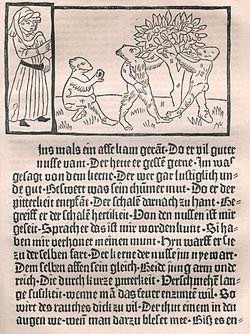 Ins mals ein affe kam gerant. Do er vil guter
nusse vant. Der hette er gessen gerne. Im was
gesagt von dem kerne. Der wer gar lustiglich un-
de gut. Beswert was sein thumer mut. Do er der
pitterkeit empfant. Der schalen darnach zu hant. Be-
greiff er der schalen hertikeit. Von den nussen ist mir
geseit. Sprach er das ist mir worden kunt. Si ha-
ben mir verhonet meinen munt. Hyn warff er sie
zu der selben fart. Der kerne der nusse im nye wart.
Dem selben affen sein gleich. Beide jung arm unde
reich. Die durch kurtze pitterkeit. Verschmehent lan-
ge sussikeit. wenne man das feuer enzunten wil. So
wirt des rauches dick zu vil. Der thut einem in den
augen we. wen man darzu bleset me. Biß es en-